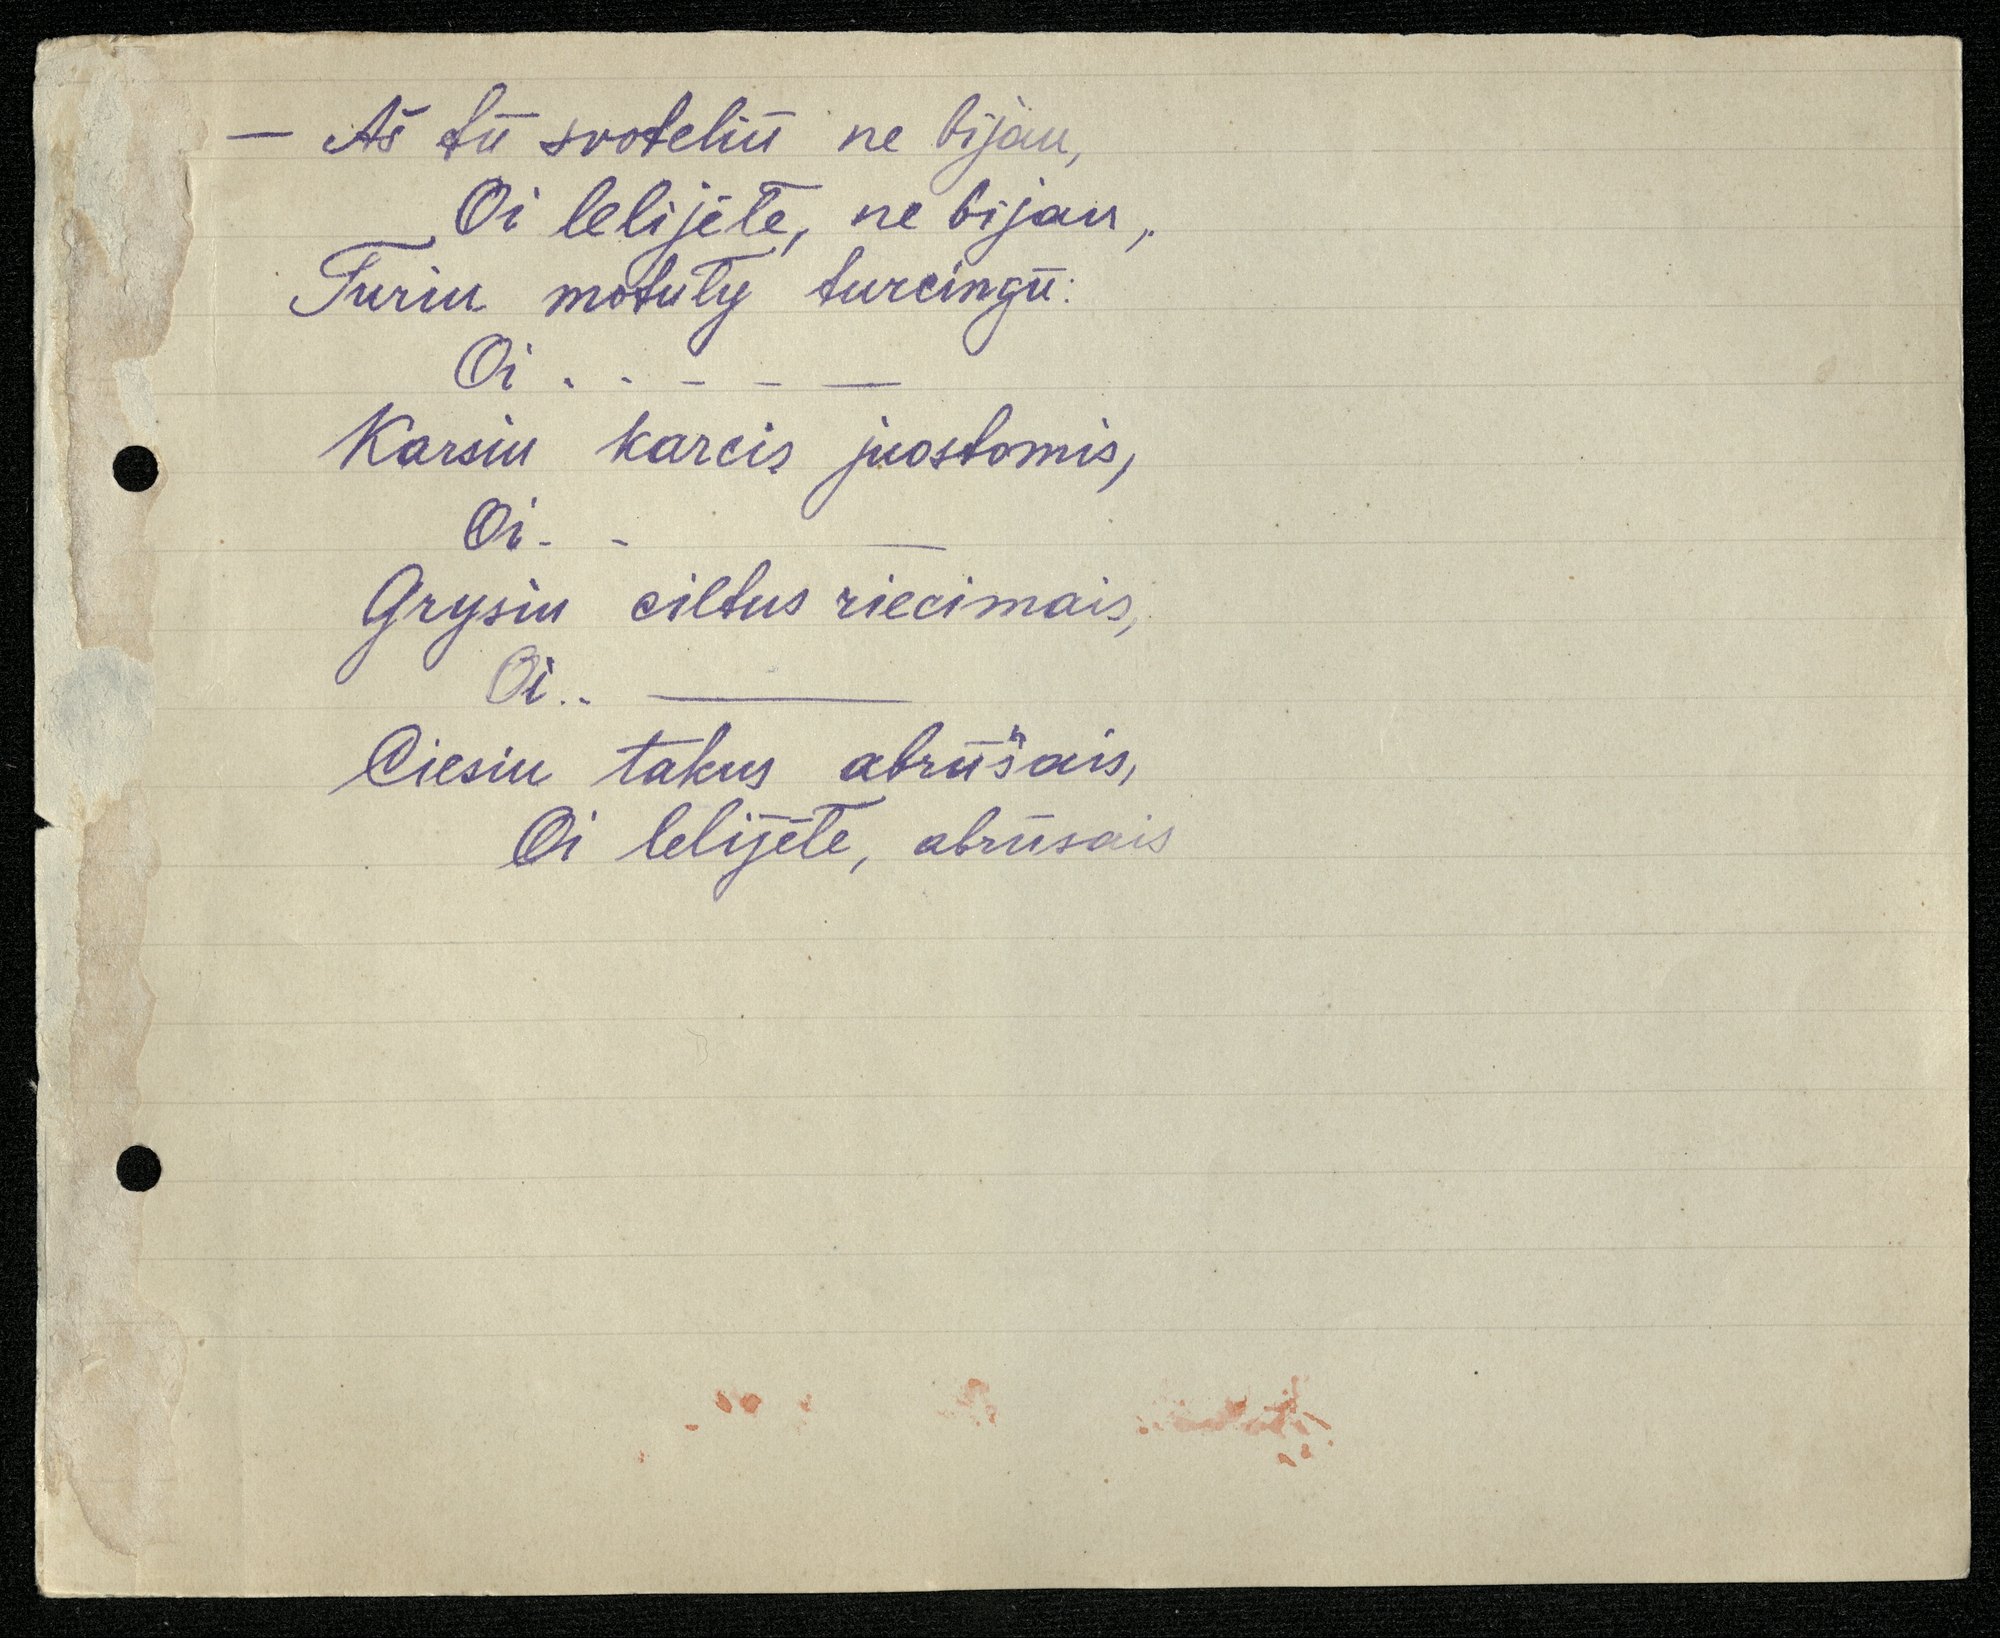 — Aš tū svoteliū ne bijau,
Oi lelijėte, ne bijau,
Turiu motuty turcingū:
Oi . . – – —
Karsiu karcis juostomis,
Oi - - —
Grysiu ciltus riecimais,
Oi .. —
Ciesiu takus abrūšais,
Oi lelijėte, abrūsais